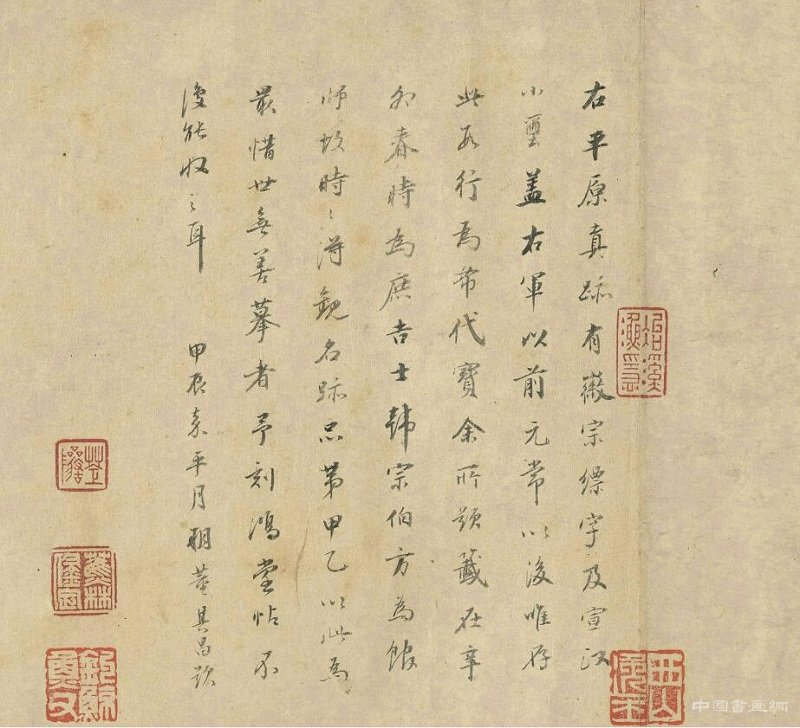 右平原真跡有徽宗縹字及宣和
小璽蓋右軍以前元常以後唯存
此數行為希代寶余所題籤在辛
卯春時為庶吉士韓宗伯方為館
師故時〻得觀名跡品第甲乙以此為
最惜世無善摹者予刻鴻堂帖不
復能收之耳 甲辰嘉平月朔董其昌題
中國書画網